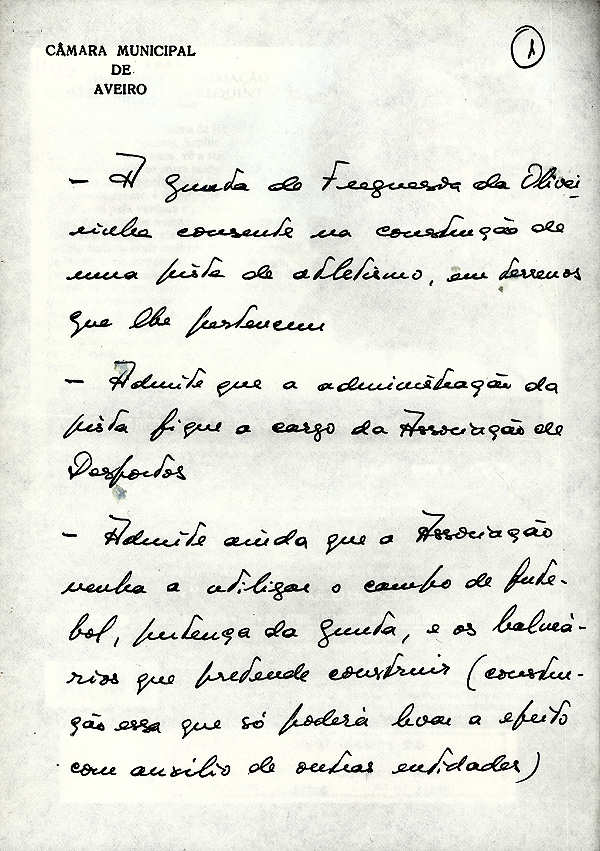 CÂMARA MUNICIPAL
DE
AVEIRO
1
– A Junta de Freguesia da Olivei
rinha consente na construção de
uma pista de atletismo, em terrenos
que lhe pertencem
– Admite que a administração da
pista fique a cargo da Associação de
Desportos
– Admite ainda que a Associação
venha a utilizar o campo de fute-
bol, pertença da Junta, e os balneá-
rios que pretende construir (constru-
ção essa que só poderá levar a efeito
com auxílio de outras entidades)